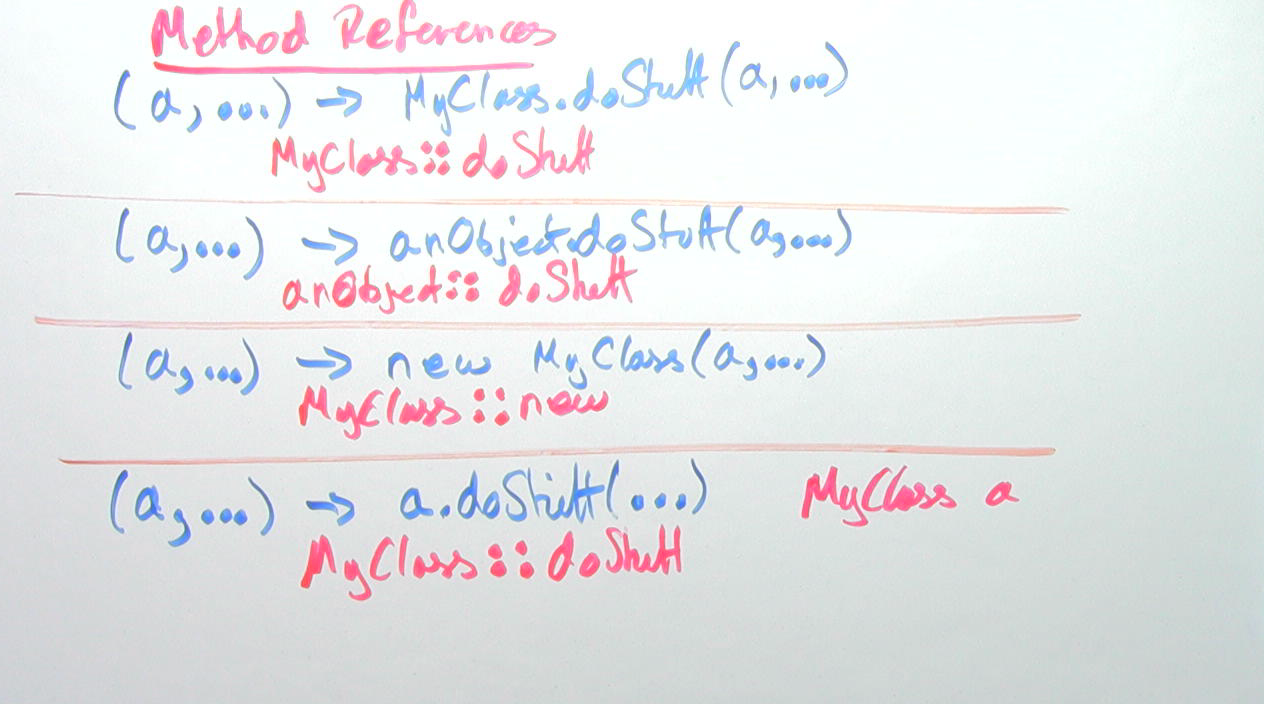 Method References
(a, ...) → MyClass.doStuff(a, ...)
MyClass::doStuff
(a, ...) → anObject.doStuff(a, ...)
anObject::doStuff
(a, ...) → new MyClass(a, ...)
MyClass::new
(a, ...) → a.doStuff(...) MyClass a
MyClass::doStuff